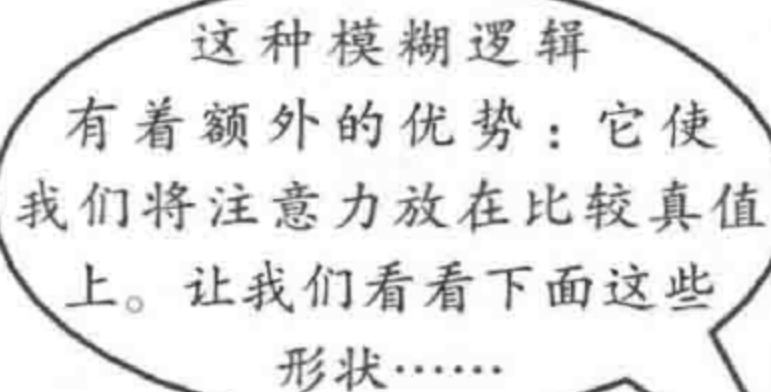 这种模糊逻辑
有着额外的优势：它使
我们将注意力放在比较真值
上。让我们看看下面这些
形状……